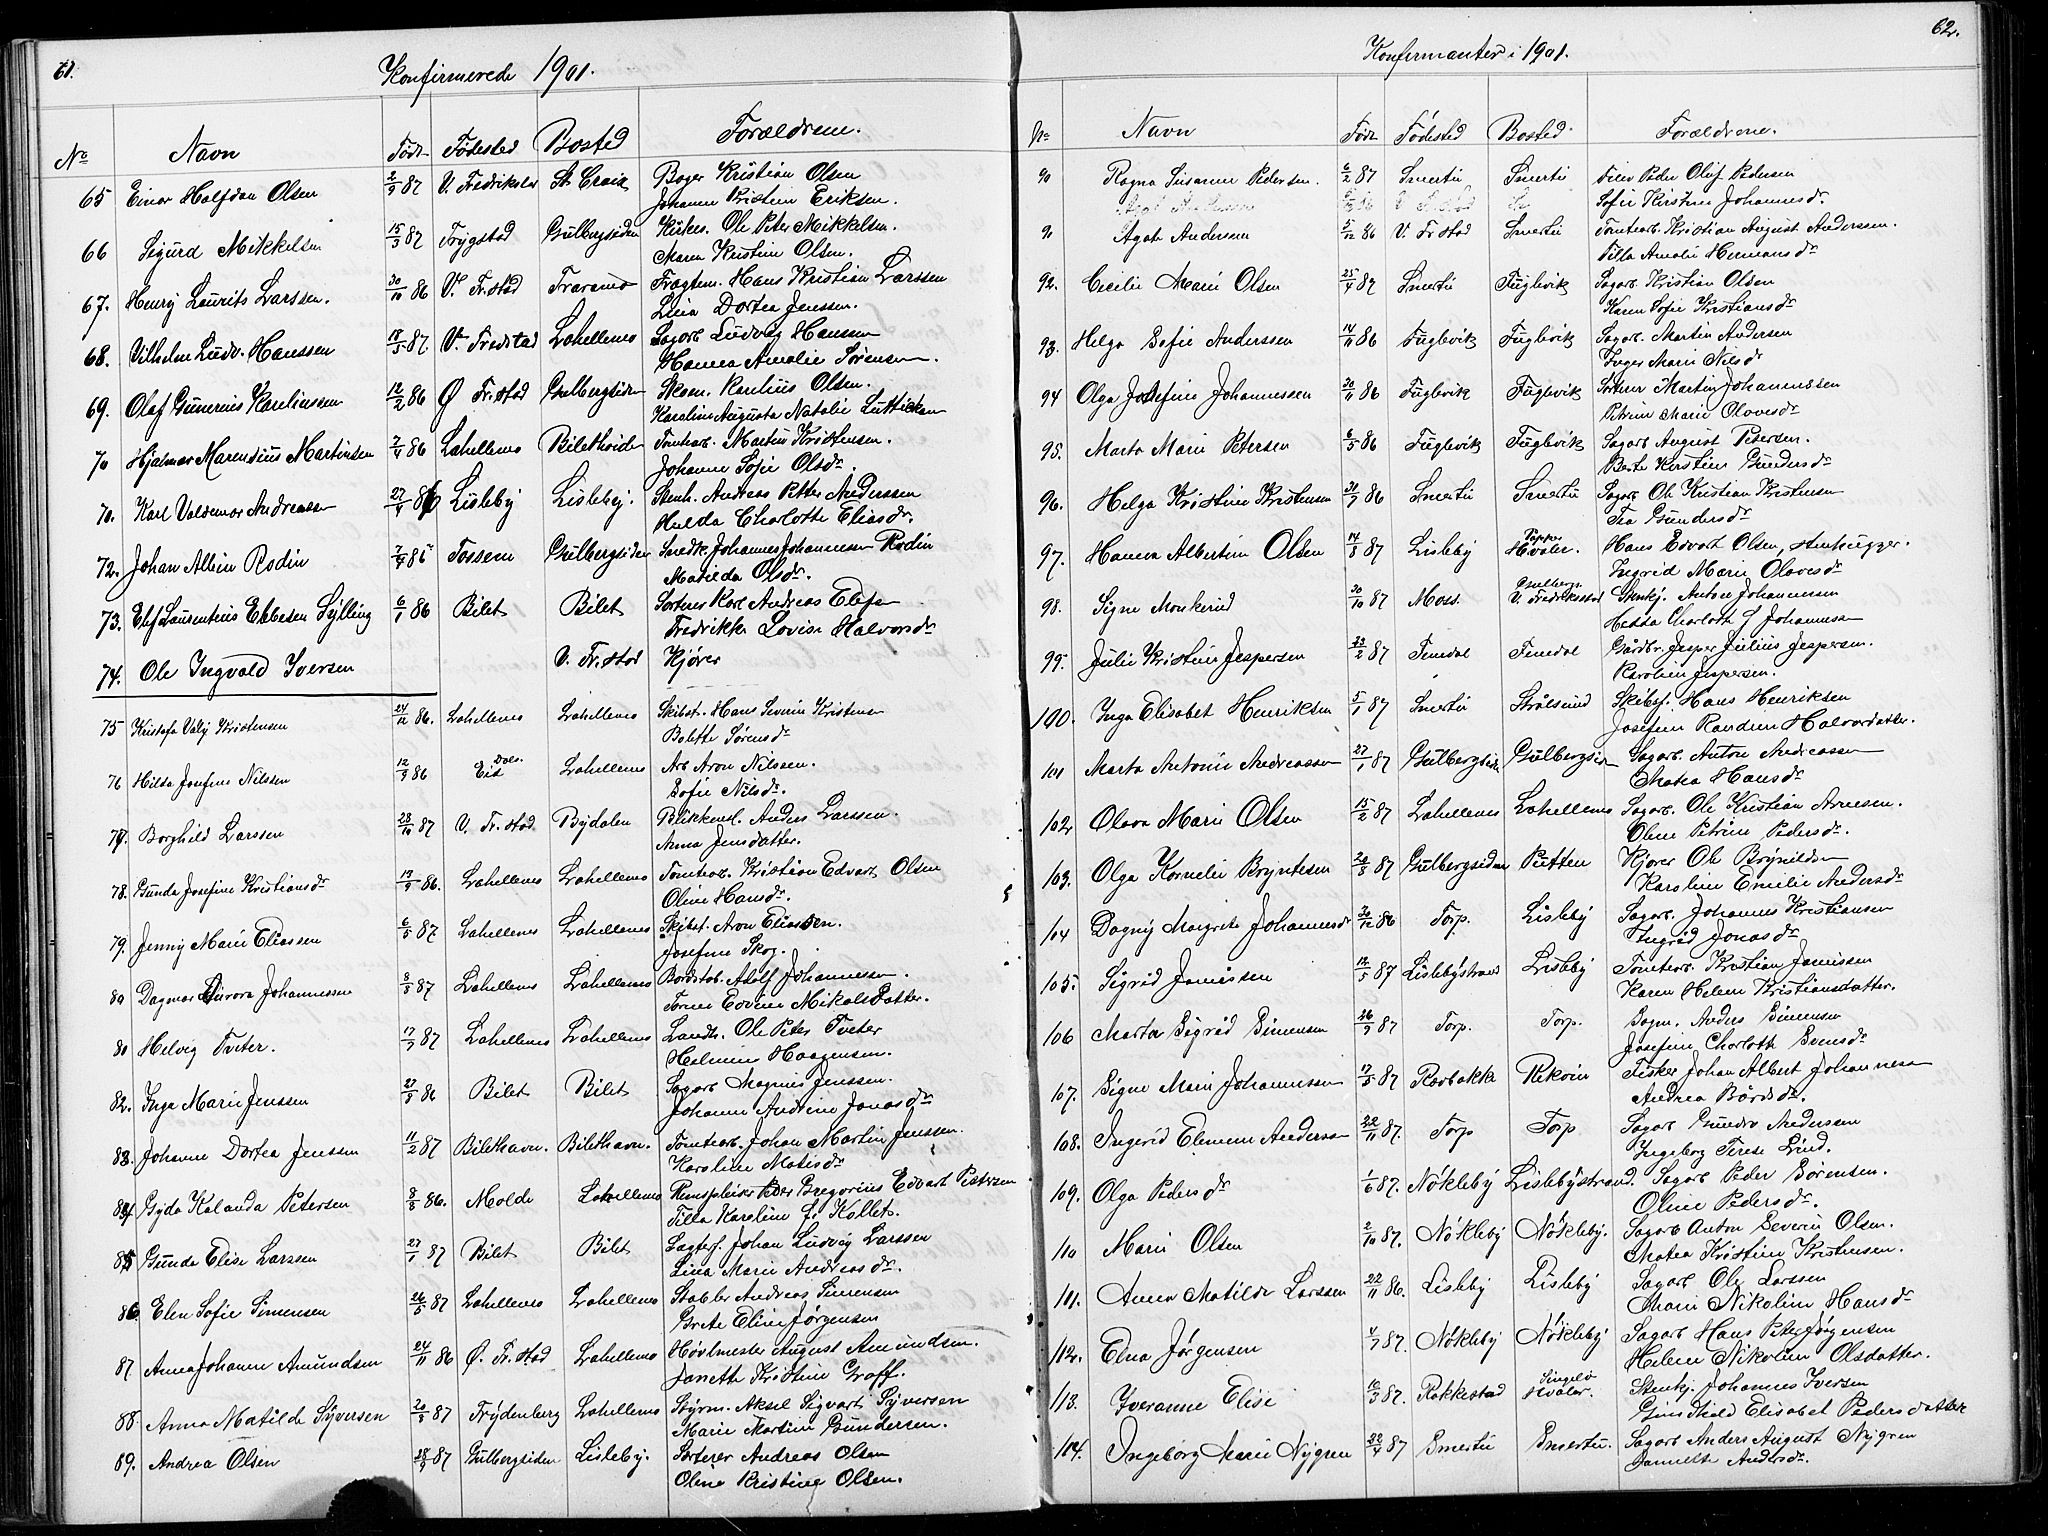 61.
Konfirmerede 1901.
No Navn Født Fødested Bosted Forældrene.
65 Einar Halfdan Olsen 2/9 87 V. Fredrikstad St. Croix Bager Kristian Olsen
Johanne Kristine Eriksen.
66 Sigurd Mikkelsen 15/3 87 Trygstad Gulbergsiden Kusk. Ole Peter Mikkelsen.
Maren Kristine Olsen.
67. Henry Laurits Larssen. 30/10 86 V. Fr.stad Traramo Fragtem. Hans Kristian Larssen
Lina Dortea Jenssen.
68. Vilhelm Ludv. Hanssen 18/5 87. V. Fredstad Lahellemo Sagarb. Ludvig Hanssen
Hanna Amalie Sørensen.
69. Olaf Gunerius Karelinssen 12/2 86 Ø Fr.stad Gulbergsiden Skom. Karelius Olsen.
Karoline Augusta Natalie
70 Hjalmar Marensius Martinsen 2/4 86 Lahellemo Bilethsiden Tomtearb. Martin Kristensen.
Johanne Sofie Olsdr.
70. Karl Valdemar Andreassen 27/4 86 Lisleby Lisleby. Stenh. Andreas Petter Anderssen
Hulda Charlotte Eliasdr.
72. Johan Albin Rodin 7/4 86 Tossene Gulbergsiden Snedk. Johannes Johannessen Rodin
Matilda Olsdr.
73. Elef Laurentius Ebbesen Sylling 6/1 86 Bilet Bilet Sorterer Karl Andreas Elefsen
Fredrikke Lovise Halvorsdr
74. Ole Ingvald Iversen V. Fr.stad Kjører
75 Kristofa Valy Kristensen 24/12 86. Lahellemo Lahellemo Skibst. Hans Severin Kristensen
Bolette Sørensdr
76 Hilda Josefine Nilssen 12/9 86 Eid Dals. Lahellemo Arb Aron Nilssen.
Sofie Nilsdr.
77. Borghild Larssen 28/10 87 V. Fr.stad. Bydalen Blikkensl. Anders Larssen.
Anna Jensdatter.
78. Gunda Josefine Kristiansdr 13/9 86. Lahellemo Lahellemo Tomtearb. Kristian Edvart Olsen
Oline Hansdr.
79. Jenny Marie Eliassen 6/5 87 Lahellemo Lahellemo Skibst. Aron Eliassen.
Josefine Skog.
80 Dagmar Aurora Johannessen 8/3 87 Lahellemo Lahellemo Bordstab. Adolf Johannessen.
Torine Edvine Mikalsdatter.
80 Helvig Tveter. 17/7 87 Lahellemo Lahellemo Landh. Ole Peter Tveter
Helmine Haagensen.
82. Inga Marie Jenssen 27/9 86 Bilet Bilet Sagarb Magnus Jenssen.
Johanne Andrine Jonasdr
83. Johanne Dortea Jenssen 11/2 87 Bilethavn. Bilethavn. Tomtearb. Johan Martin Jenssen.
Karoline Matisdr
84 Gyda Kalanda Petersen 8/8 86. Molde Lahellemo Peder Gregorius Edvart Petersen
Tilla Karoline f. Kollet.
85 Gunda Elise Larssen 27/1 87 Bilet Bilet Sagterf. Johan Ludvig Larssen
Lina Marie Andreasdr.
86. Elen Sofie Simensen 26/5 87 Lahellemo Lahellemo Stabler Andreas Simensen
Grete Eline Jørgensen
87 Anna Johanne Amundsen 24/11 86 Ø. Fr.stad Lahellemo Høvlmester August Amundsen.
Janette Kristine Graff.
88. Anna Matilde Syversen 20/8 87 Frydenberg Lahellemo Styrm. Aksel Sigvart Syversen
Marie Martine Gundersen.
89. Andrea Olsen 28/9 87 Gulbergsiden Lisleby. Sorterer Andreas Olsen
Oline Kristine Olsen.
62.
Konfirmanter i 1901.
No Navn Født Fødested Bosted. Forældrene.
90 Ragna Susanne Pedersen. 6/2 87 Smertu Smertu Filer Peder Oluf Pedersen
Sofie Kirstine Johannesdr.
91 Agate Andersen 5/12 86 V. Frstad Smertu Tomtearb. Kristian August Anderssen.
Tilla Amalie Hermansdr
92. Cicilie Marie Olsen 25/4 87 Smertu Fuglevik Sagarb Kristian Olsen
Karen Sofie Kristiansdr
93. Helga Sofie Anderssen 14/11 86 Fuglevik Fuglevik Sagarb. Martin Andersen
Inger Marie Nilsdr
94 Olga Josefine Johannessen 20/11 86 Fuglevik Fuglevik Sorterer Martin Johannessen
Petrine Marie Olavesdr
95. Marta Marie Petersen 6/5 86 Fuglevik Fuglevik Sagarb August Petersen.
Berte Kirstine Gundersdr
96. Helga Kristine Kristensen 31/7 86 Smertu Smertu Sagarb Ole Kristian Kristensen
Tea Gundersdr
97. Hanna Albertine Olsen 14/8 87 Lisleby Hvaler. Hans Edvart Olsen, stenhugger.
Ingrid Marie Olavesdr
98. Signe Monkerud 30/10 87 Moss. Gulbergs. V. Fredriksstad Stenhj. Anton Johannessen
Hedda Charlotte J Johannessen
99. Julie Kristine Jespersen 23/2 87 Tenedal Tenedal Gårdbr. Jesper Julius Jespersen.
Karoline Jespersen.
100. Inga Elisabet Henriksen 5/1 87 Smertu Strålsund Skibsf. Hans Henriksen
Josefine Randine Halvordatter.
101 Marta Antonie Andreassen 27/1 87 Gulbergsiden Gulbergsiden Sagarb. Anton Andreassen
Matea Hansdr
102. Olava Marie Olsen 15/2 87 Lahellemo Lahellemo Sagarb. Ole Kristian Arnesen.
Oline Petrine Pedersdr.
103. Olga Kornelie Bryntesen 20/8 87 Gulbergsiden Putten Kjører Ole Brynildsen
Karoline Emilie Andersdr
104 Dagny Margrete Johannesdr 30/12 86 Torp. Lisleby Sagarb. Johannes Kristiansen
Ingrid Jonasdr
105. Sigrid Janissen 12/5 87 Lislebystrand Lisleby Tomtearb. Kristian Janissen
Karen Helene Kristiansdatter.
106 Marta Sigrid Simensen 26/9 87 Torp. Torp. Bogm. Anders Simensen
Josefine Charlotte Svensdr
107. Signe Marie Johannessen 17/5 87 Rævbakke Rekvin Fisker Johan Albert Johannessen
Andrea Bårdsdr.
108. Ingerid Elemine Andersen 22/11 87. Torp Torp Sagarb Gunder Andersen
Ingeborg Terese Lind.
109. Olga Pedersdr 1/6 87. Nökleby Lislebystrand Sagarb Peder Sørensen.
Oline Pedersdr.
110 Marie Olsen 2/10 87. Nökleby Nökleby. Sagarb Anton Severin Olsen.
Matea Kristine Kristensen.
111. Anna Matilde Larssen 22/11 86. Lisleby Lisleby Sagarb Ole Larssen
Marie Nikoline Hansdr
112. Edna Jørgensen 4/7 87. Nökleby Nökleby Sagarb Hans Peter Jørgensen
Helene Nikoline Olsdatter.
113. Iveranne Elise 10/3 87. Rakkestad Singelö Hvaler. Stenhj. Johannes Iversen
Elisabet Pedersdatter
114. Ingeborg Marie Nygren 22/4 87 Smertu Smertu. Sagarb Anders August Nygren
Jannette Andersdr.